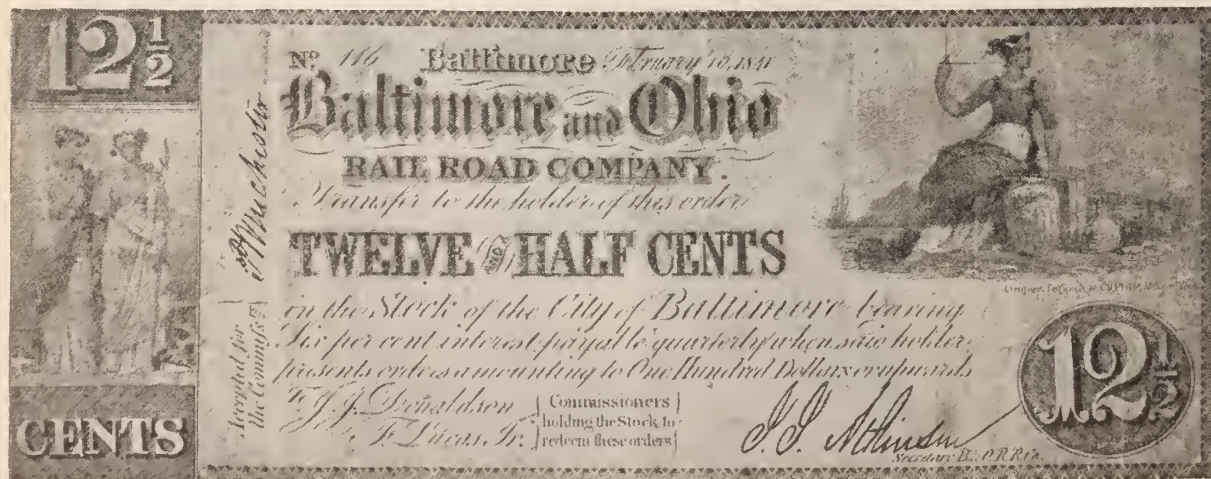 12½
CENTS
Accepted for
the Commiss:rs
No 116 Baltimore February 10, 1841
Baltimore and Ohio
RAIL ROAD COMPANY.
Transfer to the holder of this order
TWELVE AND HALF CENTS
in the Stock of the City of Baltimore bearing
Six per cent interest payable quarterly when said holder
presents orders amounting to One Hundred Dollars or upwards
To J. J. Donaldson
F. Lucas, Jr.
Commissioners
holding the Stock to
redeem these orders
J. I. Atkinson
Secretary B. & O. R. R. Co.
12½